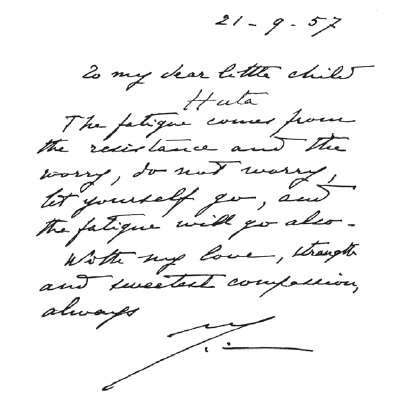 21-9-57
To my dear little child
Huta
The fatigue comes from
the resistance and the
worry, do not worry,
let yourself go, and
the fatigue will go also-
With my love, strength
and sweetest compassion,
always